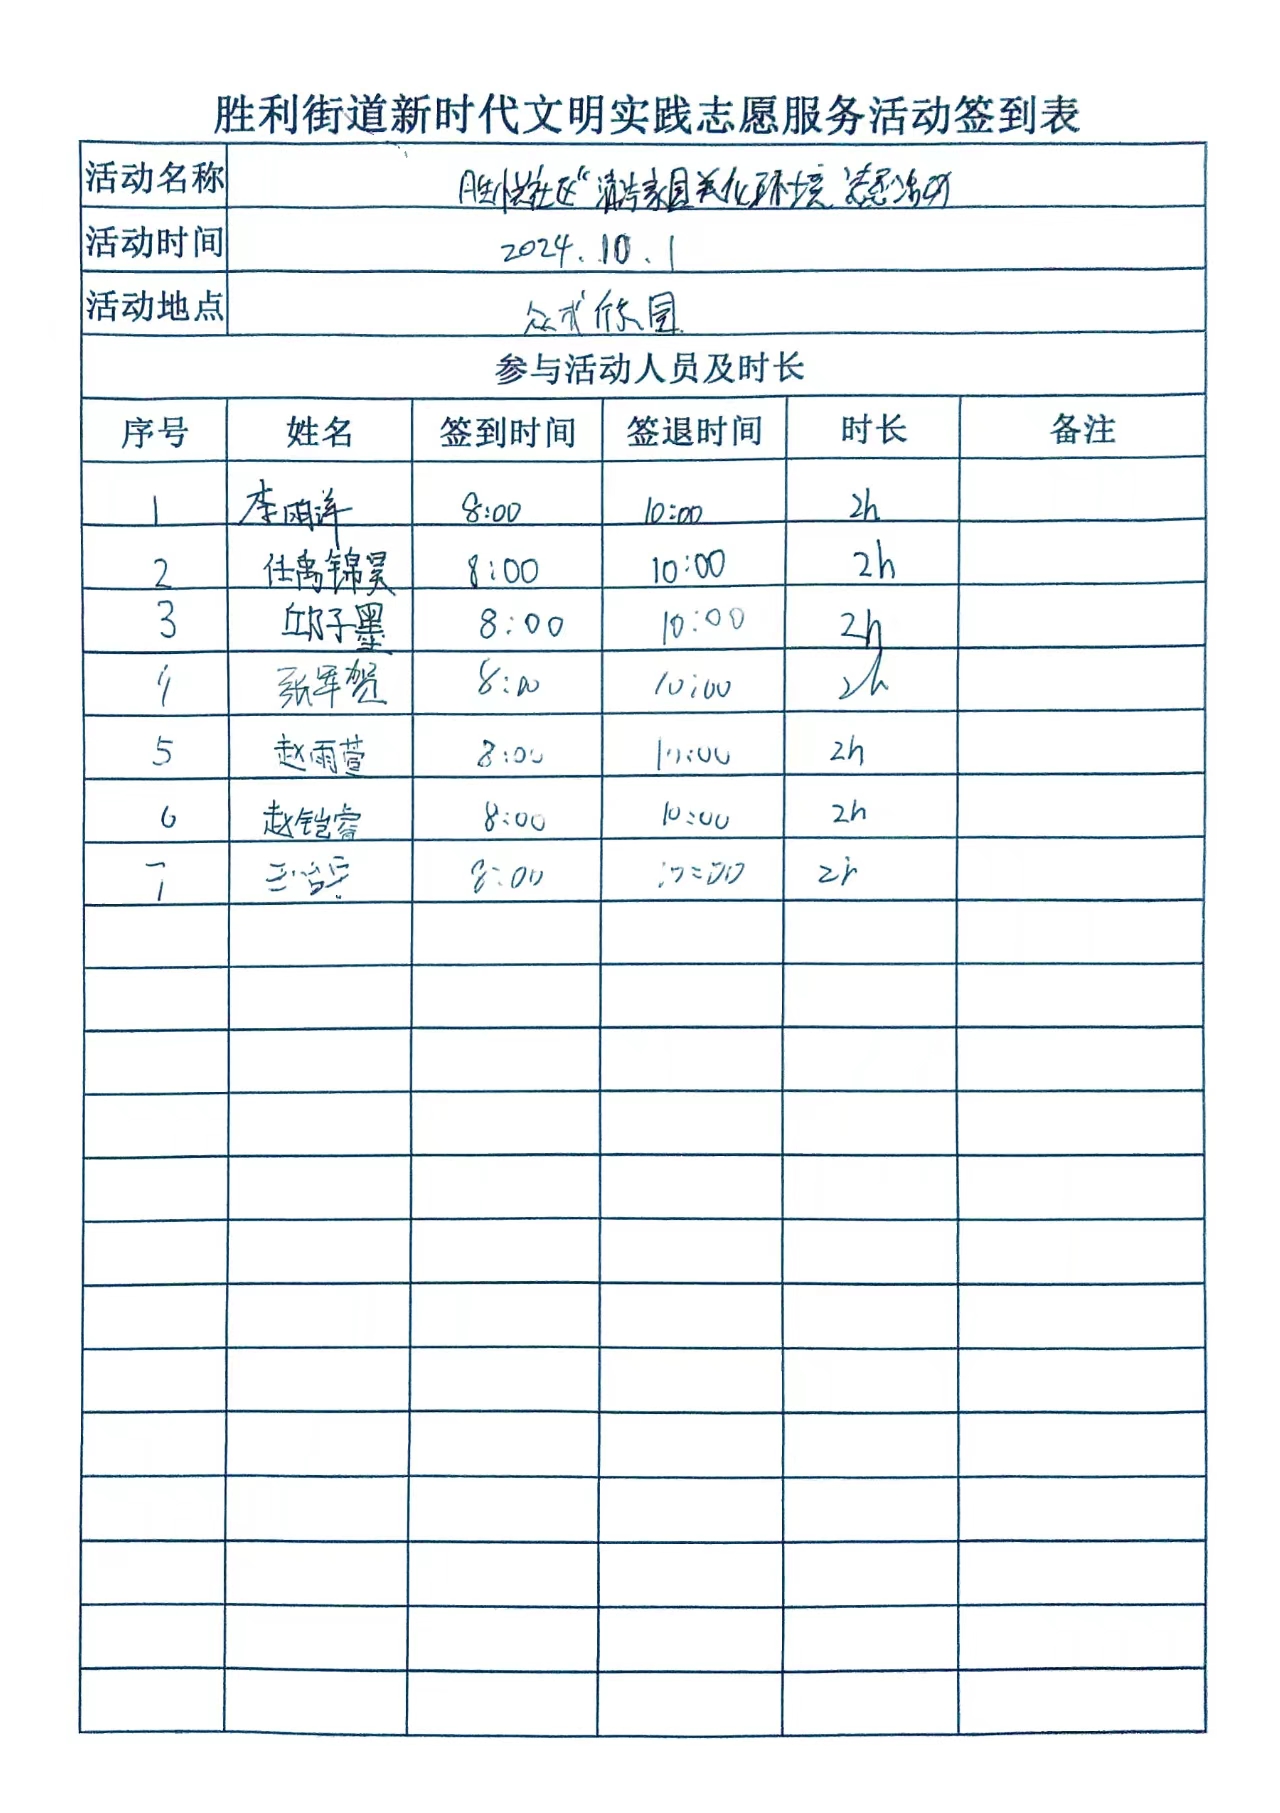 胜利街道新时代文明实践志愿服务活动签到表
活动名称 胜利社区"清洁家园美化环境"志愿活动
活动时间 2024.10.1
活动地点 家园
参与活动人员及时长
序号 姓名 签到时间 签退时间 时长 备注
1 李雨洋 8:00 10:00 2h
2 任禹锦昊 8:00 10:00 2h
3 邱子墨 8:00 10:00 2h
4 张军贺 8:00 10:00 2h
5 赵雨萱 8:00 10:00 2h
6 赵铠睿 8:00 10:00 2h
7 8:00 10:00 2h